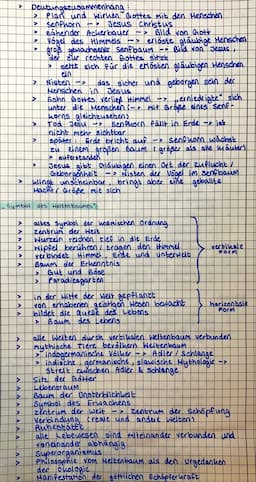 > Deutungszusammenhang
> Plan und Wirken Gottes mit den Menschen
> Senfkorn --> Jesus Christus
> säender Ackerbauer --> Bild von Gott
> Vögel des Himmels --> erlöste gläubige Menschen
> groß gewachsener Senfbaum --> Bild von Jesus,
der zur rechten Gottes sitzt
> setzt sich für die erlösten gläubigen Menschen
ein
> Nisten --> das sicher und geborgen sein der
Menschen in Jesus
> Sohn Gottes verließ Himmel --> "erniedrigte" sich
unter die Menschen (--> mit Größe eines Senf-
korns gleichzusehen)
> Tod Jesu --> Senfkorn fällt in Erde -> ist
nicht mehr sichtbar
> später Erde bricht auf --> Senfkorn wächst
zu einem großen Baum (größer als alle Kräuter)
> auferstanden
> Jesus gibt Gläubigen einen Ort der Zuflucht /
Geborgenheit --> Nisten der Vögel im Senfbaum
> klingt unscheinbar, bringt aber eine geballte
Macht / Größe mit sich
"Symbol des Weltenbaumes"
> altes Symbol der kosmischen Ordnung
> Zentrum der Welt
> Wurzeln reichen tief in die Erde
> Wipfel berühren / tragen den Himmel
> verbindet Himmel, Erde und Unterwelt
> Baum der Erkenntnis
> Gut und Böse
> Paradiesgarten
vertikale
Form
> in der Mitte der Welt gepflanzt
> von erhabenen geistigen Wesen bewacht
> bildet die Quelle des Lebens
> Baum des Lebens
horizontale
Form
> alle Welten durch vertikalen Weltenbaum verbunden
> mythische Tiere bevölkern Weltenbaum
> indogermanische Völker -> Adler / Schlange
> indische, germanische, slawische Mythologie -->
Streit zwischen Adler & Schlange
> Sitz der Götter
> Lebensraum
> Baum der Unsterblichkeit
> Symbol des Erwachens
> Zentrum der Welt --> Zentrum der Schöpfung
> Verbindung (reale und andere Welten)
> Ruhestätte
> alle Lebewesen sind miteinander verbunden und
voneinander abhängig
> Superorganismus
> Philosophie vom Weltenbaum als den Urgedanken
der Ökologie
> Manifestation der göttlichen Schöpferkraft